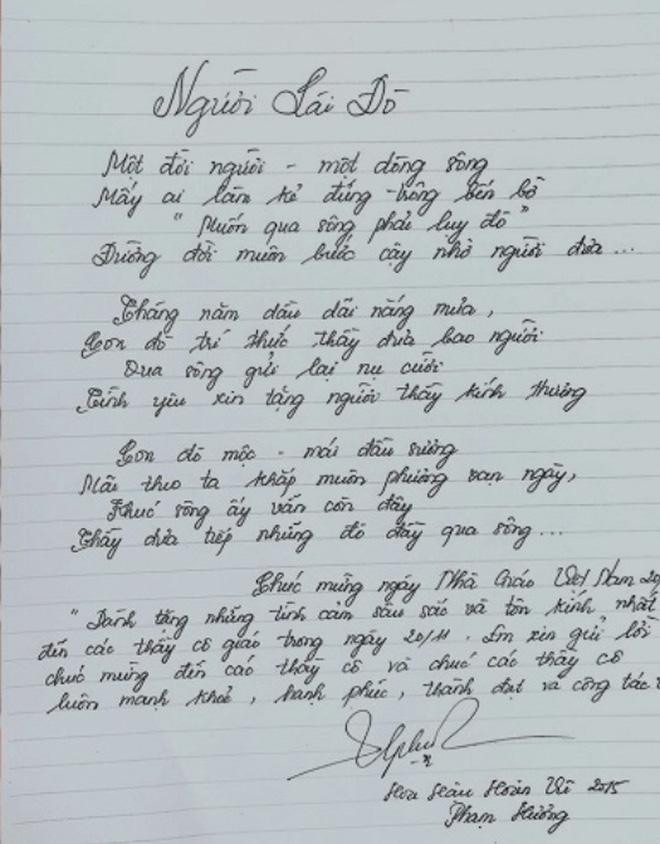 Người Lái Đò
Một đời người - một dòng sông
Mấy ai làm kẻ đứng trông bến bờ
"Muốn qua sông phải luỵ đò"
Đường đời muôn bước cậy nhờ người đưa...
Tháng năm dầu dãi nắng mưa,
Con đò trí thức thầy đưa bao người
Qua sông gửi lại nụ cười
Tình yêu xin tặng người thầy kính thương
Con đò mộc - mái đầu sương
Mãi theo ta khắp muôn phương vạn ngày,
Khúc sông ấy vẫn còn đây
Thầy đưa tiếp những đò đầy qua sông...
Chúc mừng ngày Nhà Giáo Việt Nam 20
"Dành tặng những tình cảm sâu sắc và tôn kính nhất
đến các thầy cô giáo trong ngày 20/11. Em xin gửi lời
chúc mừng đến các thầy cô và chúc các thầy cô
luôn mạnh khoẻ, hạnh phúc, thành đạt và công tác
Hoa Hậu Hoàn Vũ 2015
Phạm Hương